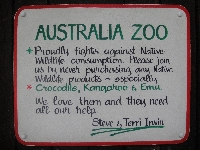 AUSTRALIA ZOO
* Proudly fights against Native
Wildlife consumption. Please join
us by never purchasing any Native
Wildlife products - especially
* Crocodile, Kangaroo & Emu.
We love them and they need
all our help.
Steve & Terri Irwin